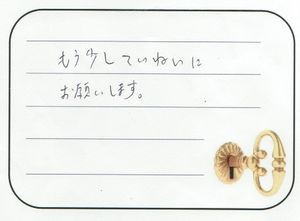 もう少していねいに
お願いします。